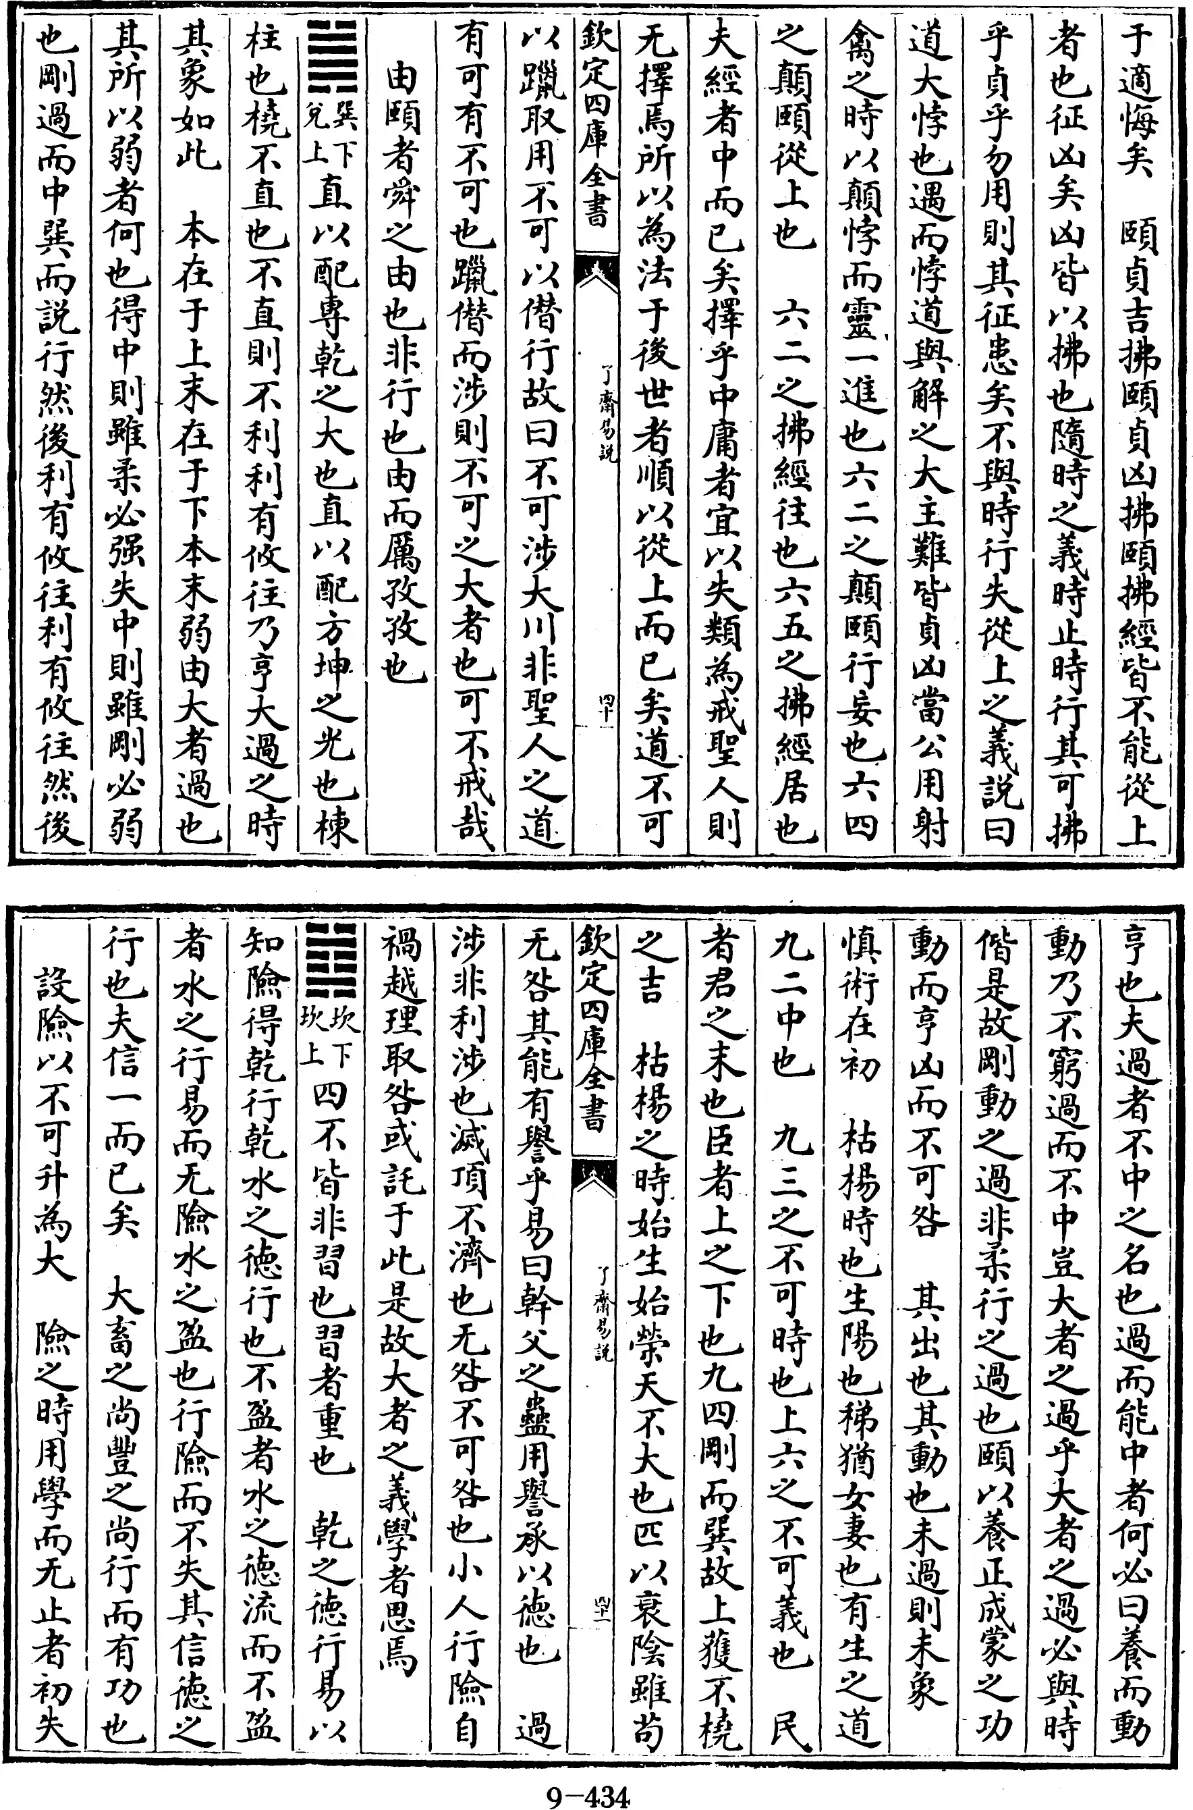 于適悔矣　頤貞吉拂頤貞凶拂頤拂經皆不能從上
者也征凶矣凶皆以拂也隨時之義時止時行其可拂
乎貞乎勿用則其征患矣不與時行失從上之義説曰
道大悖也遇而悖道與解之大主難皆貞凶當公用射
禽之時以顛悖而靈一進也六二之顛頤行妄也六四
之顛頤從上也　六二之拂經往也六五之拂經居也
夫經者中而已矣擇乎中庸者宜以失類為戒聖人則
无擇焉所以為法于後世者順以從上而已矣道不可
欽定四庫全書　了齋易説　四十
以躐取用不可以僭行故曰不可涉大川非聖人之道
有可有不可也躐僭而涉則不可之大者也可不戒哉
由頤者舜之由也非行也由而厲孜孜也
䷛巽下兌上直以配專乾之大也直以配方坤之光也棟
柱也橈不直也不直則不利利有攸往乃亨大過之時
其象如此　本在于上末在于下本末弱由大者過也
其所以弱者何也得中則雖柔必强失中則雖剛必弱
也剛過而中巽而説行然後利有攸往利有攸往然後
亨也夫過者不中之名也過而能中者何必曰養而動
動乃不窮過而不中豈大者之過乎大者之過必與時
偕是故剛動之過非柔行之過也頤以養正成蒙之功
動而亨凶而不可咎　其出也其動也未過則未象
慎術在初　枯楊時也生陽也稊猶女妻也有生之道
九二中也　九三之不可時也上六之不可義也　民
者君之末也臣者上之下也九四剛而巽故上獲不橈
之吉　枯楊之時始生始榮天不大也匹以衰陰雖苟
欽定四庫全書　了齋易説　四十一
无咎其能有譽乎易曰幹父之蠱用譽承以德也　過
涉非利涉也滅頂不濟也无咎不可咎也小人行險自
禍越理取咎或託于此是故大者之義學者思焉
䷜坎下坎上四不皆非習也習者重也　乾之德行易以
知險得乾行乾水之德行也不盈者水之德流而不盈
者水之行易而无險水之盈也行險而不失其信德之
行也夫信一而已矣　大畜之尚豐之尚行而有功也
設險以不可升為大　險之時用學而无止者初失
9-434